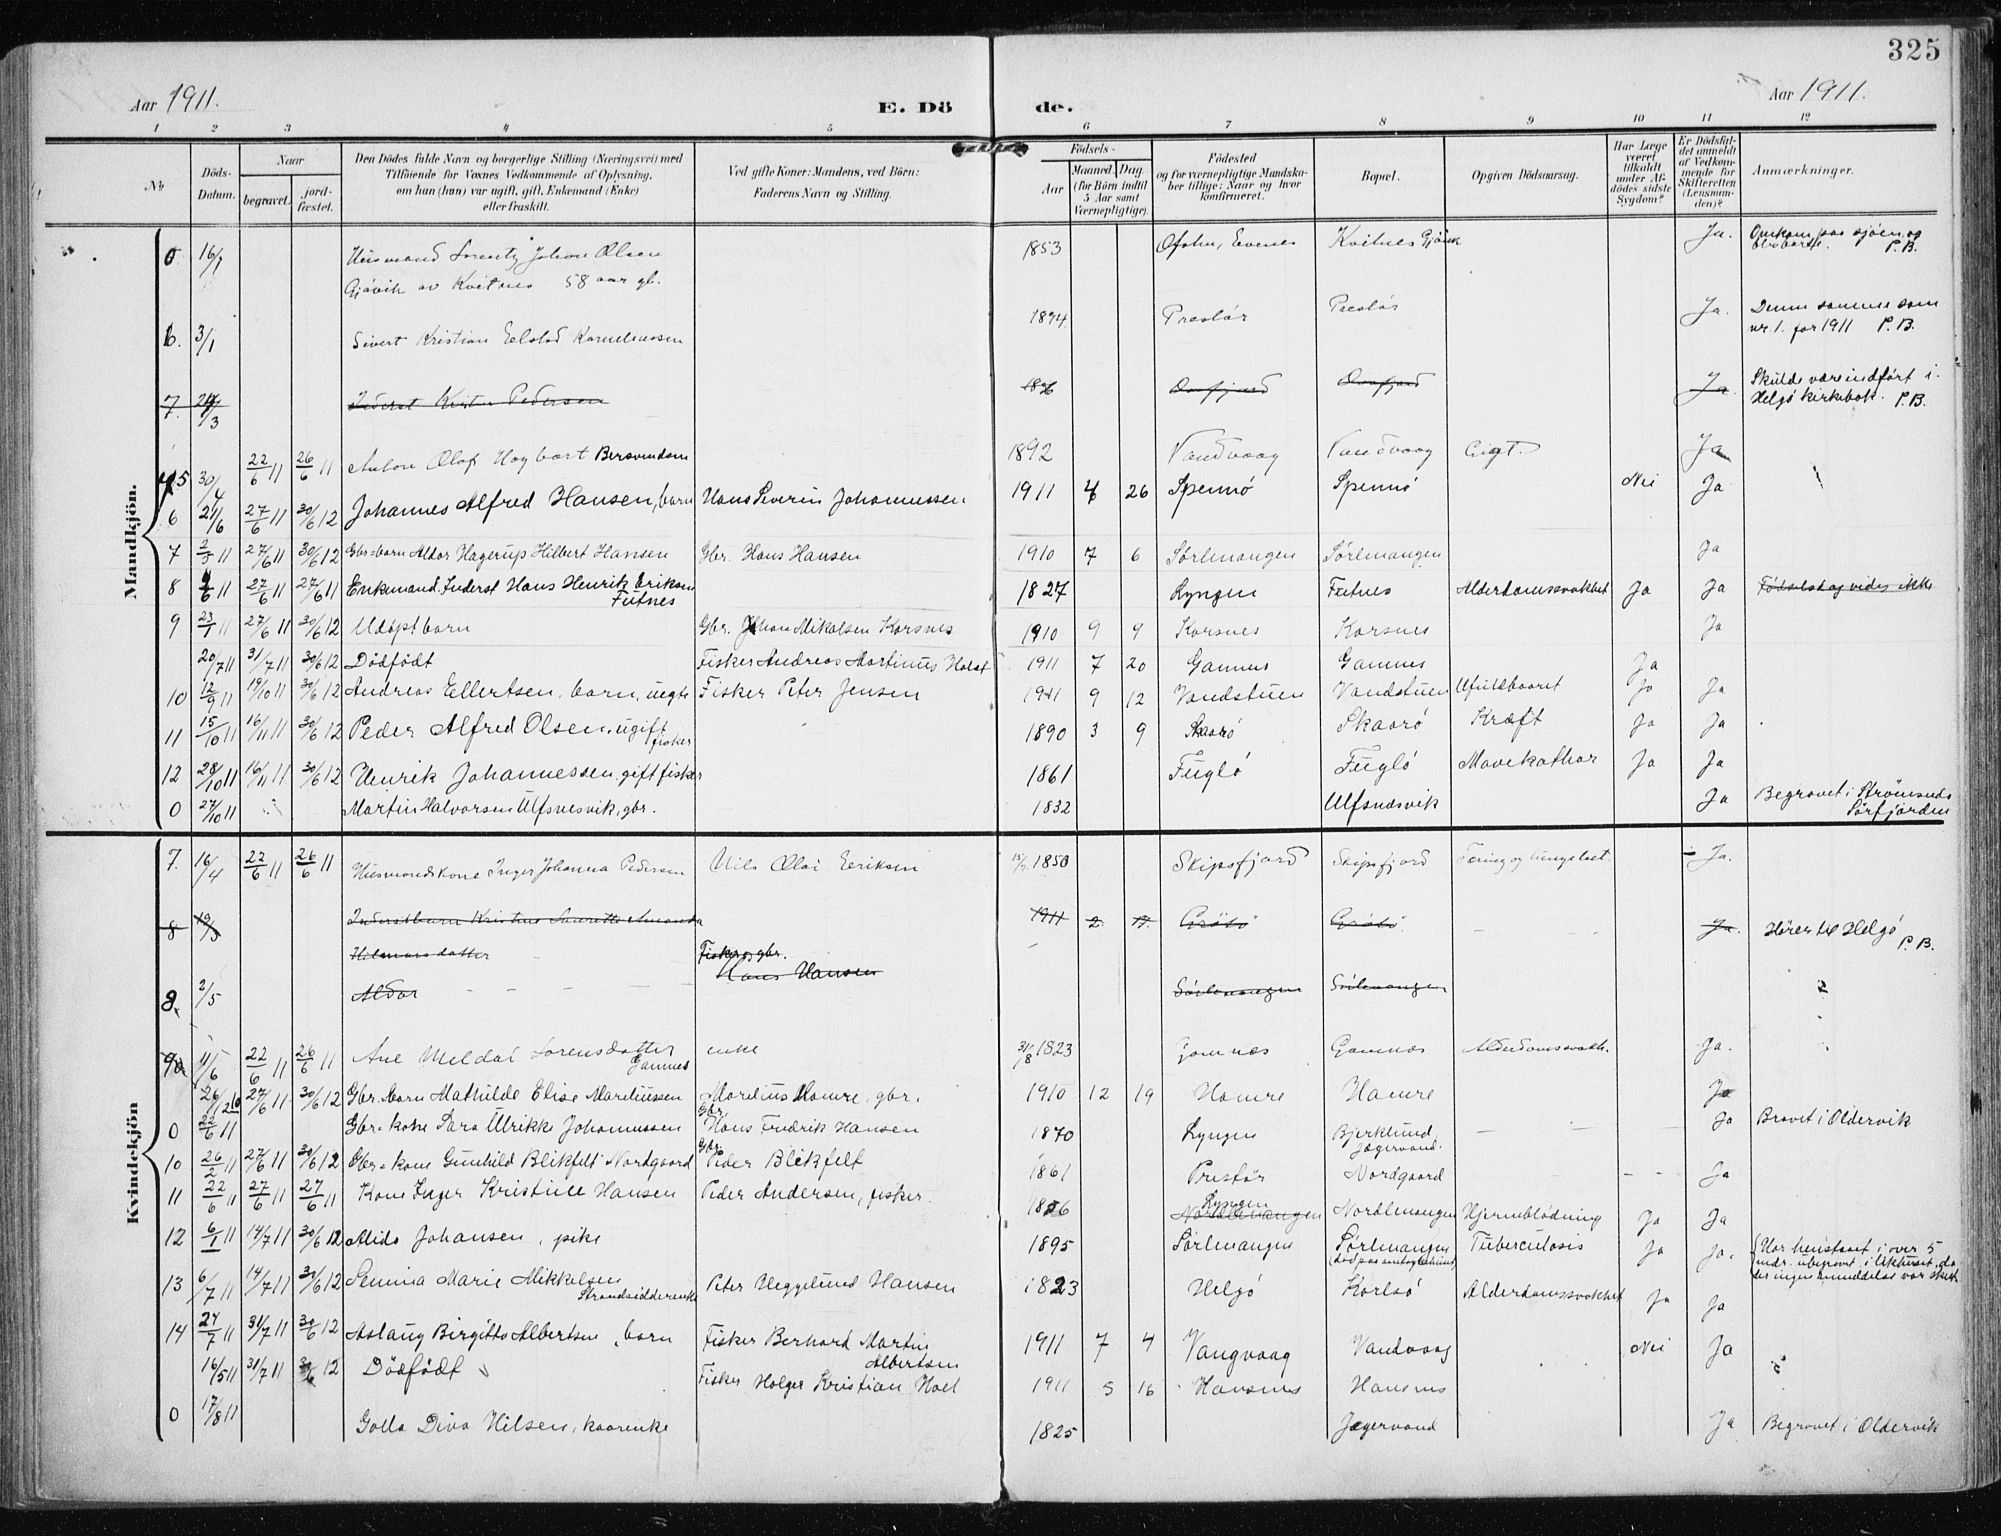 325
Aar 1911.
E. Dö
de.
Aar 1911.
1 2 3 4 5 6 7 8 9 10 11 12
No
Döds-
Datum.
Naar
begravet.
jord-
fæstet.
Den Dödes fulde Navn og borgerlige Stilling (Næringsvei) med
Tilföiende for Voxnes Vedkommende af Oplysning,
om han (hun) var ugift, gift, Enkemand (Enke)
eller fraskilt.
Ved gifte Koner: Mandens, ved Börn:
Faderens Navn og Stilling.
Födsels-
Aar
Maaned. Dag.
(for Börn indtil
5 Aar samt
Værnepligtige).
Födested
og for værnepligtige Mandska-
ber tillige: Naar og hvor
konfirmeret.
Bopæl.
Opgiven Dödsaarsag.
Har Læge
været
tilkaldt
under Af-
dödes sidste
Sygdom?
Er Dödsfal-
det anmeldt
af Vedkom-
mende for
Skifteretten
(Lensman-
den)?
Anmærkninger.
Mandkjön.
0 16/1 Husmand Lorentz Johan Olsen 1853 Ofoten, Evenes Kvitnes Gjövik Ja. Omkom paa sjöen og
P.B.
Gjövik av Kvitnes 58 aar gl.
6. 3/1 Sivert Kristian Elstad Korneliussen 1894 Prestör Prestör Ja. Denne samme som
nr. 1. for 1911 P.B.
7. 24/3 Inderst Kristen Pedersen 1876 Ja Skulde være indfört i
Helgö kirkebok. P.B.
5 30/4 22/6 11 26/6 11 Anton Olaf Hagbart Bersvendsen 1892 Vandvaag Vandvaag Gigt. Ja
6 21/6 27/6 11 30/6 12 Johannes Alfred Hansen, barn Hans Severin Johannessen 1911 4 26 Spennö Spennö Nei Ja
7 2/5 11 27/6 11 30/6 12 Gbr=barn Aldor Hagerup Hilbert Hansen Gbr. Hans Hansen 1910 7 6 Sörlenangen Sörlenangen Ja
8 4/6 11 27/6 11 27/6 11 Enkemand. Inderst Hans Henrik Eriksen 1827 Lyngen Futnes Alderdomssvakhet Ja Ja Födselsdag vides ikke
Futnes
9 23/1 11 27/6 11 30/6 12 Udöpt barn Gbr. Johan Mikalsen Korsnes 1910 9 9 Korsnes Korsnes Ja
20/7 11 31/7 11 30/6 12 Dödfödt Fisker Andreas Martinus Holst 1911 7 20 Gamnes Gamnes Ja
10 12/9 11 19/10 11 30/6 12 Andreas Ellertsen, barn, uegte Fisker Peter Jensen 1911 9 12 Vandstuen Vandstuen Ufuldbaaret Ja Ja
11 15/10 11 16/11 11 30/6 12 Peder Alfred Olsen, ugift 1890 3 9 Skaarö Skaarö Kræft Ja Ja
fisker
12 28/10 11 16/11 11 30/6 12 Henrik Johannessen, gift fisker 1861 Fuglö Fuglö Mavekathar Ja Ja
0 27/10 11 Martin Halvorsen Ulfsnesvik, gbr. 1832 Ulfsnesvik Ja Begravet i Strömsnes
Sörfjorden
Kvindekjön
7. 16/4 22/6 11 26/6 11 Husmandskone Inger Johanna Pedersen Nils Olai Eriksen 1850 Skipsfjord Skipsfjord Tæring og lungebet. Ja.
8 19/3 Inderstbarn Kristine Laurette Amanda 1911 2. 17. Grötö Grötö Ja. Hörer til Helgö
P.B.
Hilmarsdatter Fisker og gbr.
Hans Hansen
8. 2/5 Aldor Sörlenangen Sörlenangen
9 11/6 22/6 11 26/6 11 Ane Meldal Sorensdatter enke 31/8 1823 Gamnes Gamnes Alderdomssvakh. Ja.
Gamnes
26/12 10 27/6 11 30/6 12 Gbr.=barn Mathilde Elise Mareliussen Marelius Hamre, gbr. 1910 12 19 Hamre Hamre Ja
0 22/6 11 Gbr=kone Sara Ulrikke Johannessen Gbr. Hans Fredrik Hansen 1870 Lyngen Bjerklund Ja Bravet i Oldervik
Jægervand.
10 26/2 11 27/6 11 30/6 12 Gbr=kone Gunhild Blikfelt Nordgaard Gbr. Peder Blikfelt 1861 Prestör Nordgaard Ja
11 22/6 11 27/6 11 27/6 11 Kone Inger Kristine Hansen Peder Andersen, fisker. 1856 Lyngen Nordlenangen Nordlenangen Hjerneblödning Ja Ja
12 6/1 11 14/7 11 30/6 12 Alida Johansen, pike 1895 Sörlenangen Sörlenangen Tuberculosis Ja Ja. Har henstaaet i over 5
mdr. ubegravet i likhuset, da
der ingen anmeldelse var skedt
(död paa amtssykehuset)
13 6/7 11 14/7 11 30/6 12 Lenina Marie Mikkelsen Peter Heggelund Hansen 1823 Helgö Korlsö Alderdomssvakhet Ja Ja
Strandsidderenke
14 24/7 11 31/7 11 30/6 12 Aslaug Birgitte Albertsen, barn Fisker Berhard Martin 1911 7 4 Vangvaag Vandvaag Nei Ja
Albertsen
16/5 11 31/7 11 30/6 12 Dödfödt Fisker Holger Kristian Holt 1911 5 16 Hansnes Hansnes
0 17/8 11 Golla Diva Nilsen, kaarenke 1825 Jægervand Ja Begravet i Oldervik